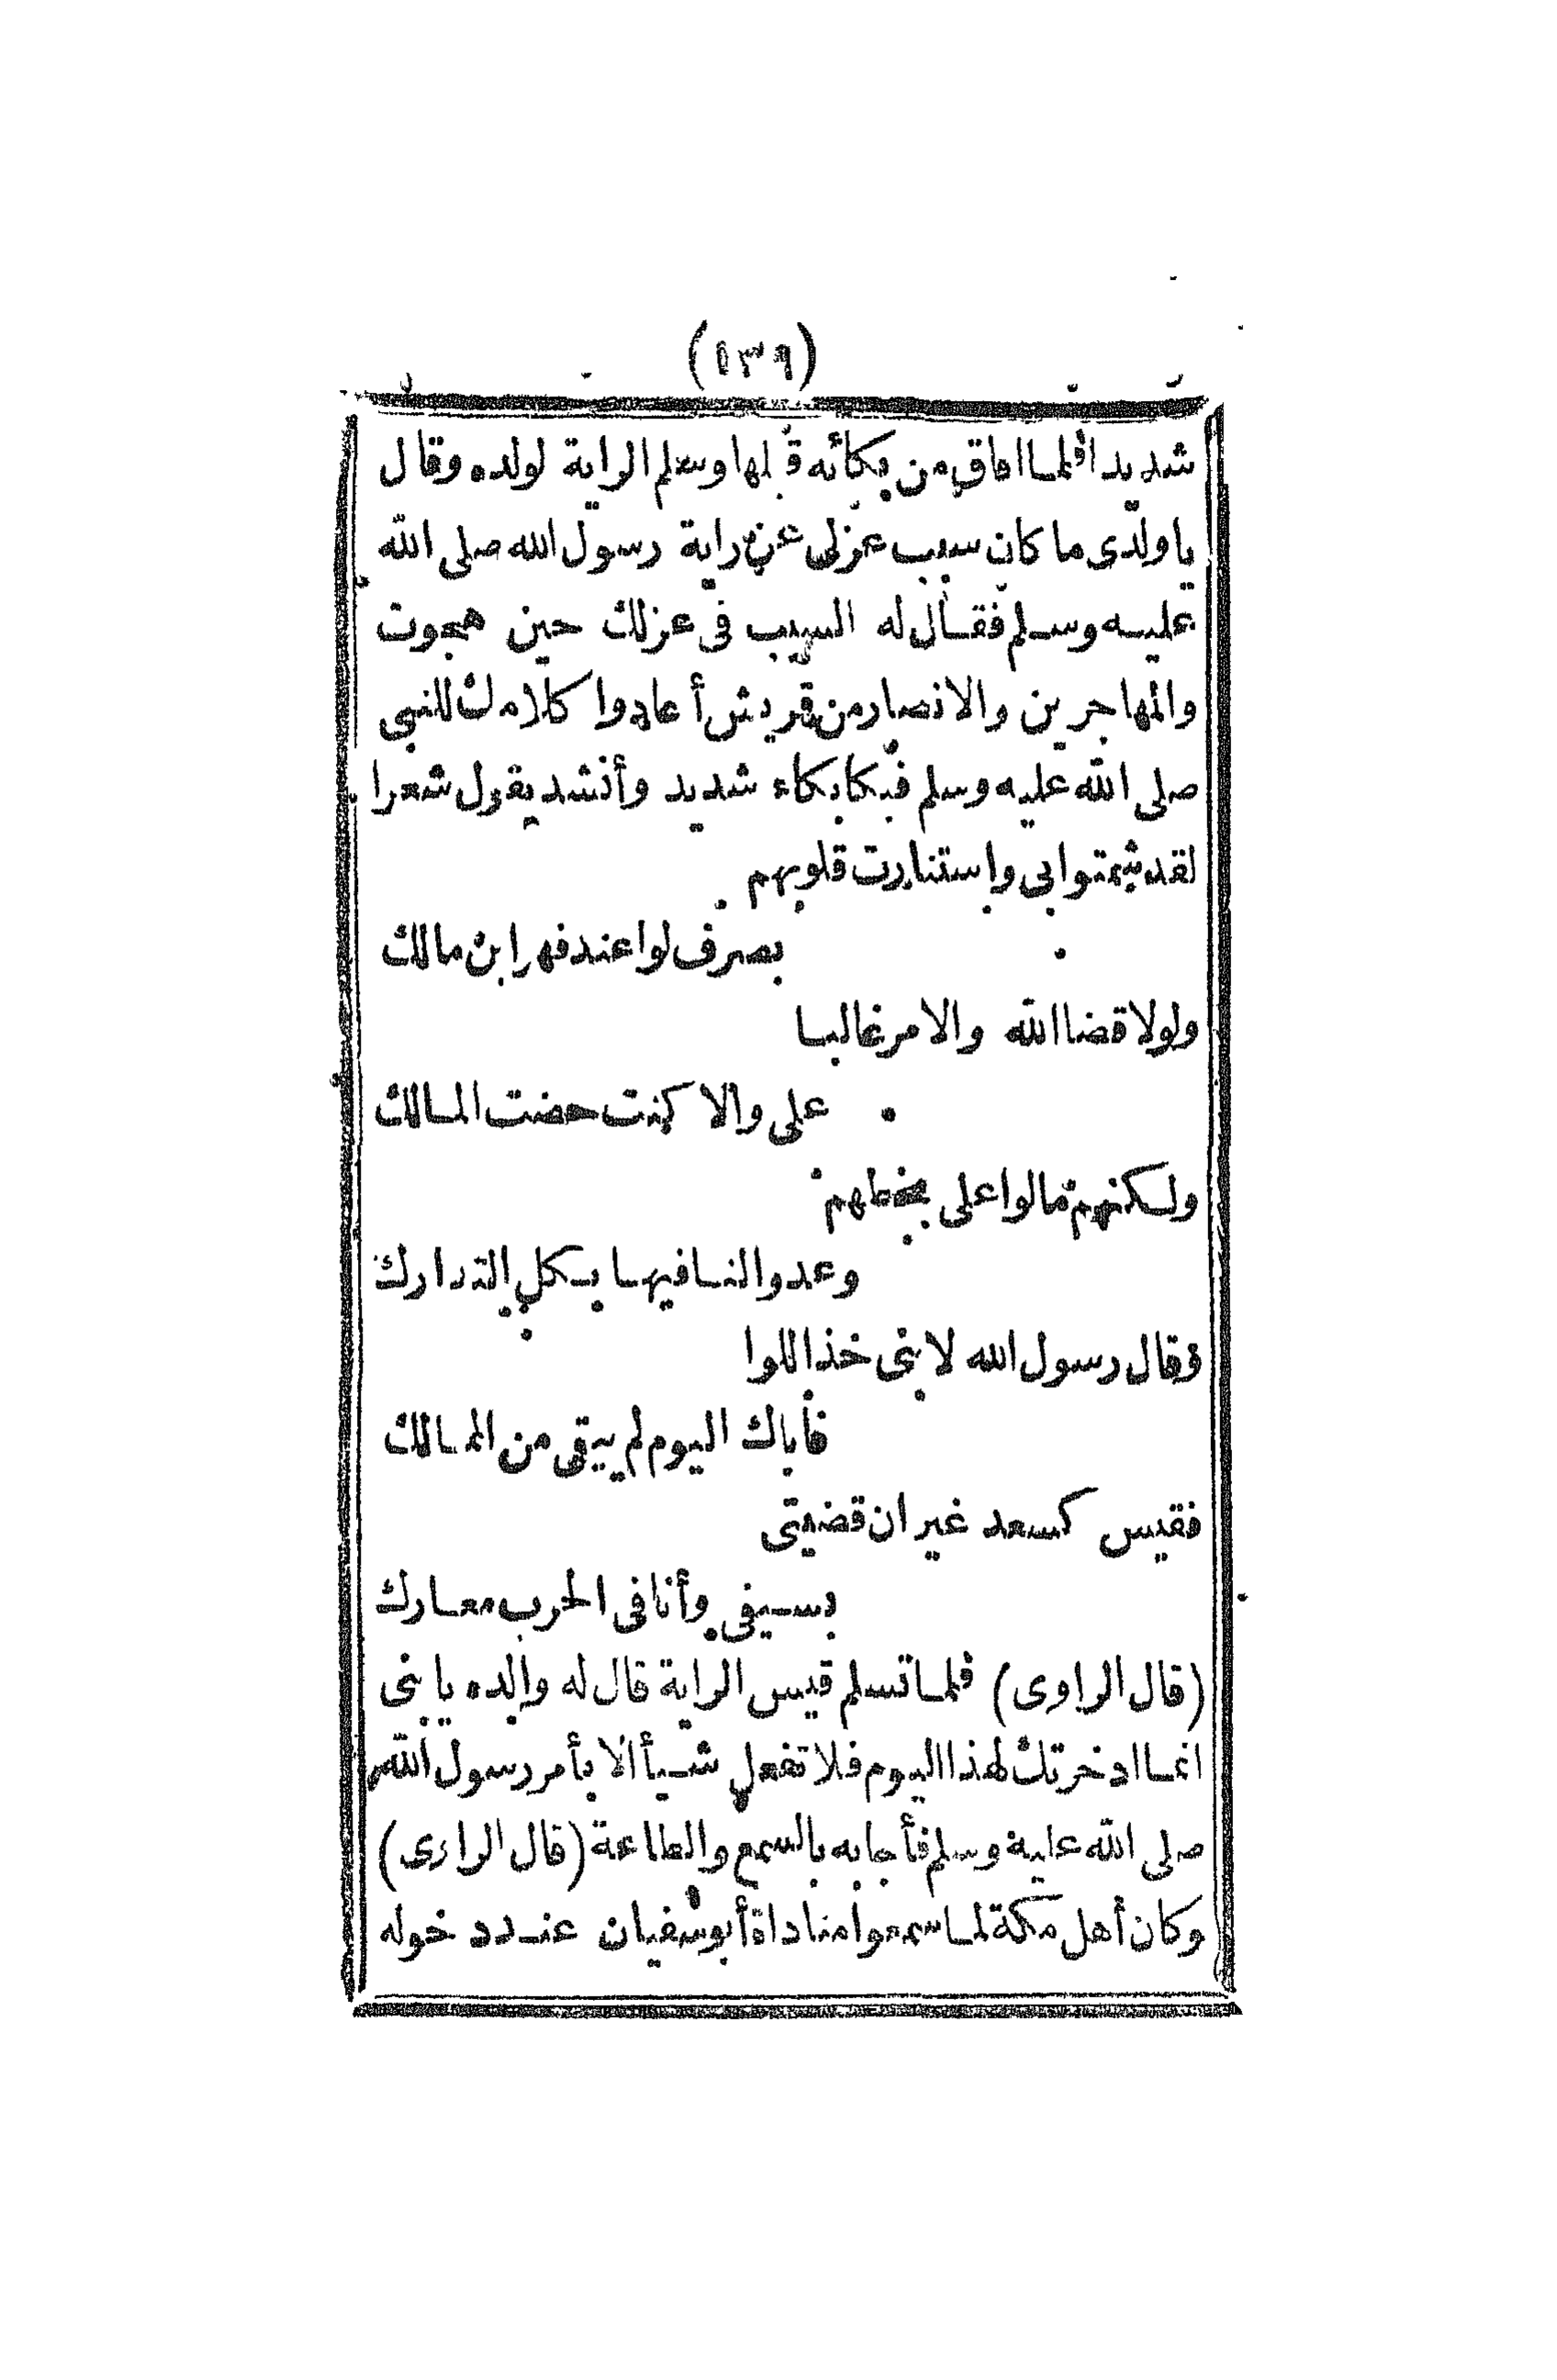 (١٣٩)
شديدا فلما افاق من بكائه قبلها وسلم الراية لولده وقال
يا ولدى ما كان سبب عزلى عن راية رسول الله صلى الله
عليه وسلم فقال له السبب فى عزلك حين هجوت
والمهاجرين والانصار من قريش أعادوا كلامك للنبى
صلى الله عليه وسلم فبكا بكاء شديد وأنشد يقول شعرا
لقد شمتوا بى واستنارت قلوبهم
بصرف لوا عند فهر ابن مالك
ولولا قضا الله والامر غالبا
على والا كنت حضت المسالك
ولكنهم مالوا على بخطهم
وعدوا لنا فيها بكل التدارك
وقال رسول الله لابنى خذ اللوا
فأباك اليوم لم يبقى من الممالك
فقيس كسعد غير ان قضيتى
بسيفى وأنا فى الحرب معارك
(قال الراوى) فلما تسلم قيس الراية قال له والده يا بنى
انما ادخرتك لهذا اليوم فلا تفعل شيأ الا بأمر رسول الله
صلى الله عليه وسلم فأجابه بالسمع والطاعة (قال الراوى)
وكان أهل مكة لما سمعوا مناداة أبو سفيان عند دخوله